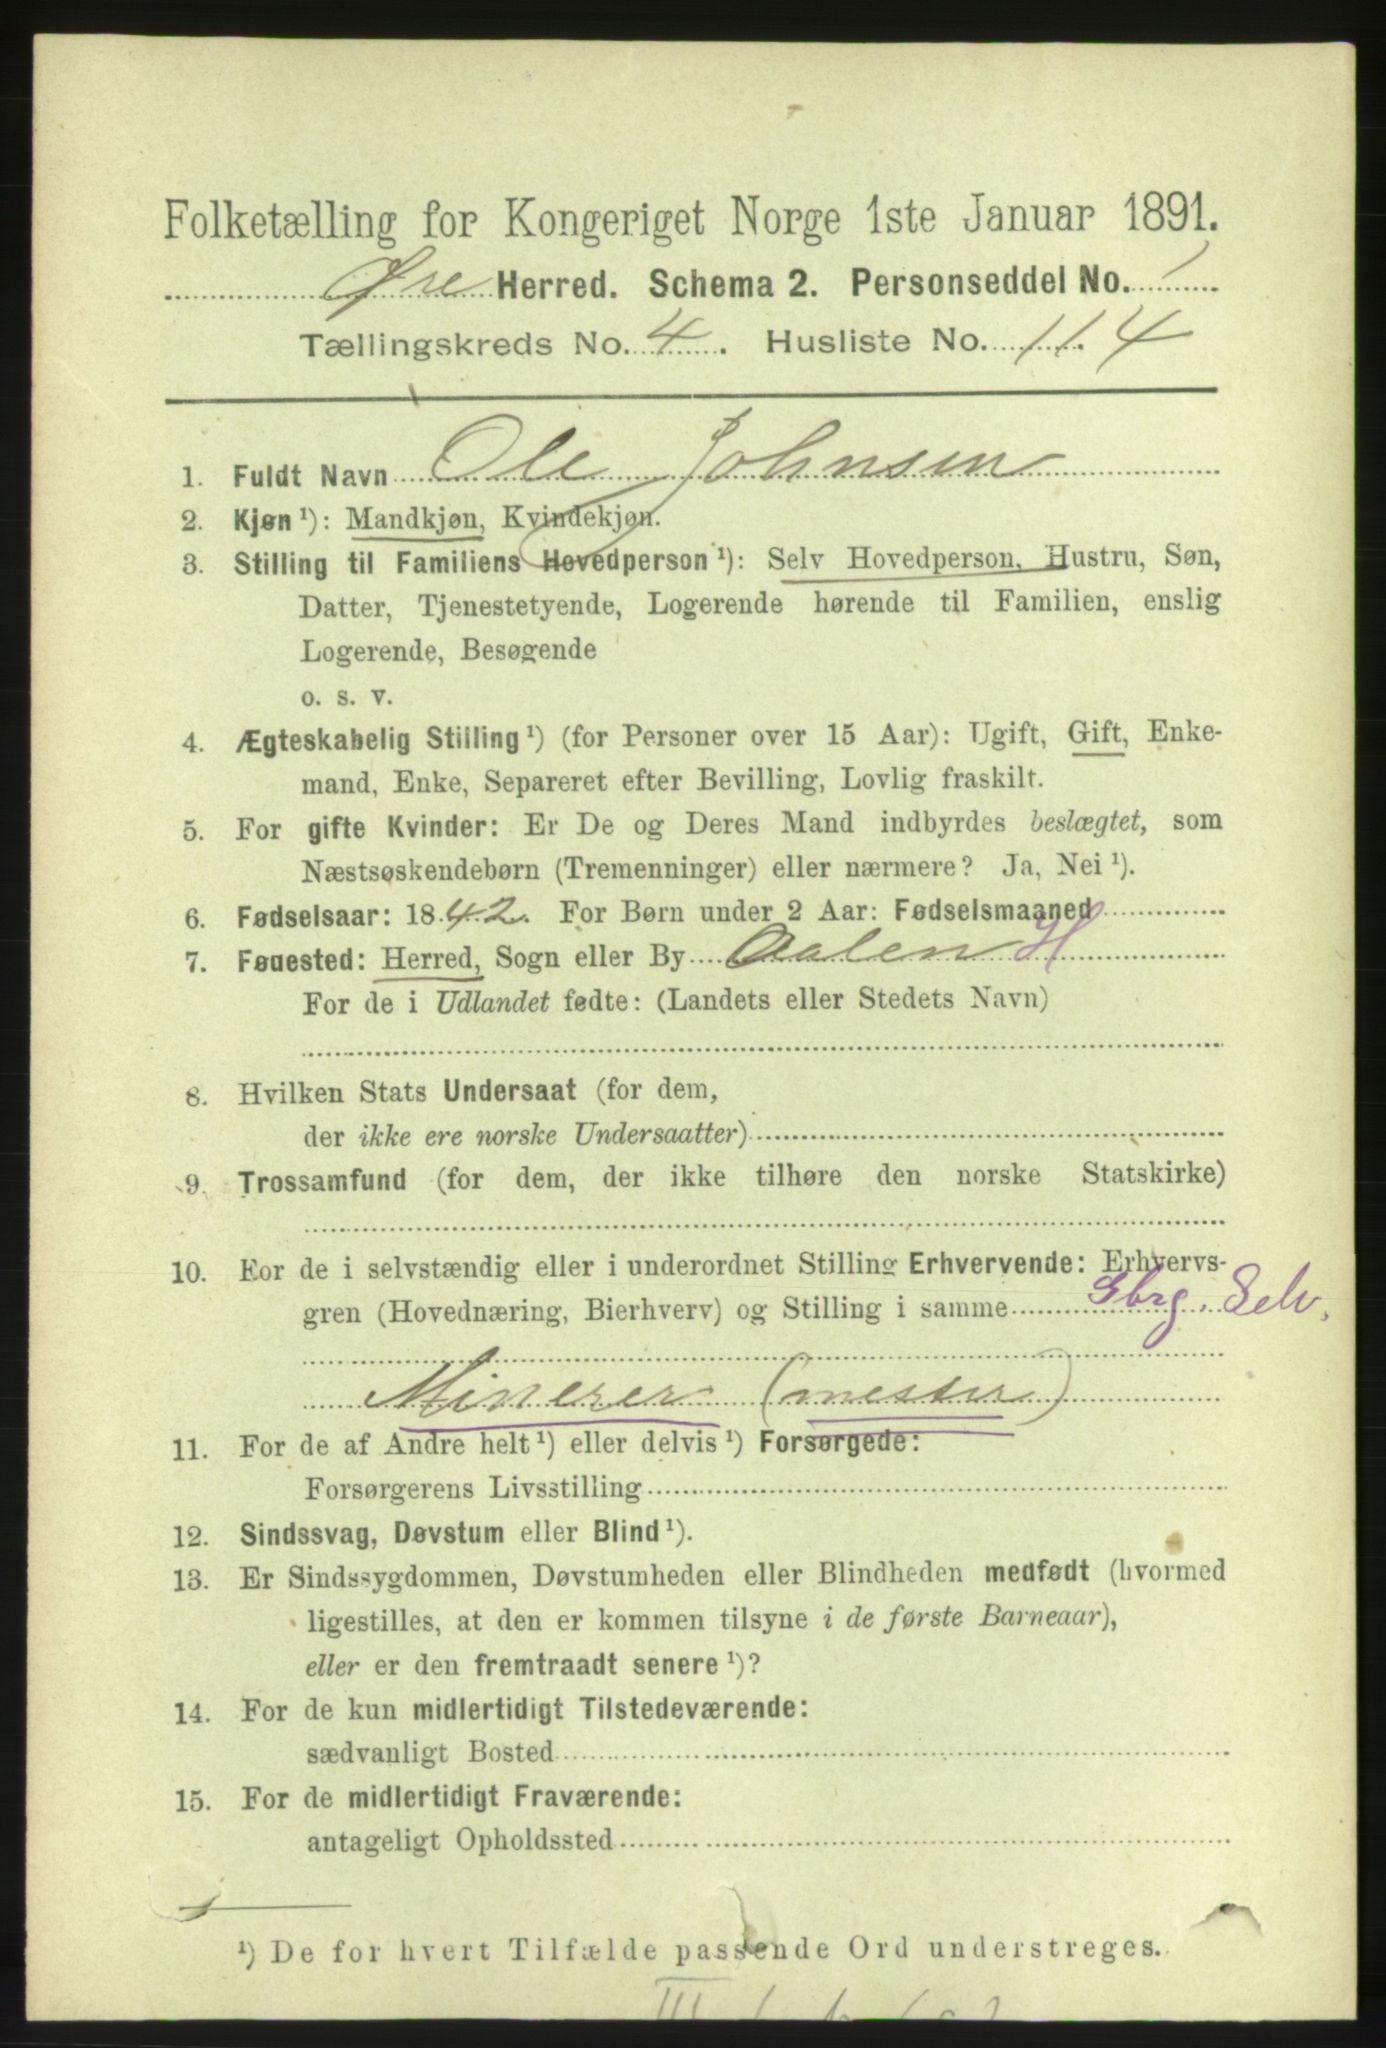 Folketælling for Kongeriget Norge 1ste Januar 1891.
Øre Herred. Schema 2. Personseddel No. 1
Tællingskreds No. 4. Husliste No. 114
1. Fuldt Navn Ole Johnsen
2. Kjøn¹): Mandkjøn, Kvindekjøn.
3. Stilling til Familiens Hovedperson¹): Selv Hovedperson, Hustru, Søn,
Datter, Tjenestetyende, Logerende hørende til Familien, enslig
Logerende, Besøgende
o. s. v.
4. Ægteskabelig Stilling¹) (for Personer over 15 Aar): Ugift, Gift, Enke-
mand, Enke, Separeret efter Bevilling, Lovlig fraskilt.
5. For gifte Kvinder: Er De og Deres Mand indbyrdes beslægtet, som
Næstsøskendebørn (Tremenninger) eller nærmere? Ja, Nei¹).
6. Fødselsaar: 1842. For Børn under 2 Aar: Fødselsmaaned
7. Fødested: Herred, Sogn eller By Aalen H
For de i Udlandet fødte: (Landets eller Stedets Navn)
8. Hvilken Stats Undersaat (for dem,
der ikke ere norske Undersaatter)
9. Trossamfund (for dem, der ikke tilhøre den norske Statskirke)
10. For de i selvstændig eller i underordnet Stilling Erhvervende: Erhvervs-
gren (Hovednæring, Bierhverv) og Stilling i samme Gbrg. Selv.
Minerer (mester)
11. For de af Andre helt¹) eller delvis¹) Forsørgede:
Forsørgerens Livsstilling
12. Sindssvag, Døvstum eller Blind¹).
13. Er Sindssygdommen, Døvstumheden eller Blindheden medfødt (hvormed
ligestilles, at den er kommen tilsyne i de første Barneaar),
eller er den fremtraadt senere¹)?
14. For de kun midlertidigt Tilstedeværende:
sædvanligt Bosted
15. For de midlertidigt Fraværende:
antageligt Opholdssted
¹) De for hvert Tilfælde passende Ord understreges.